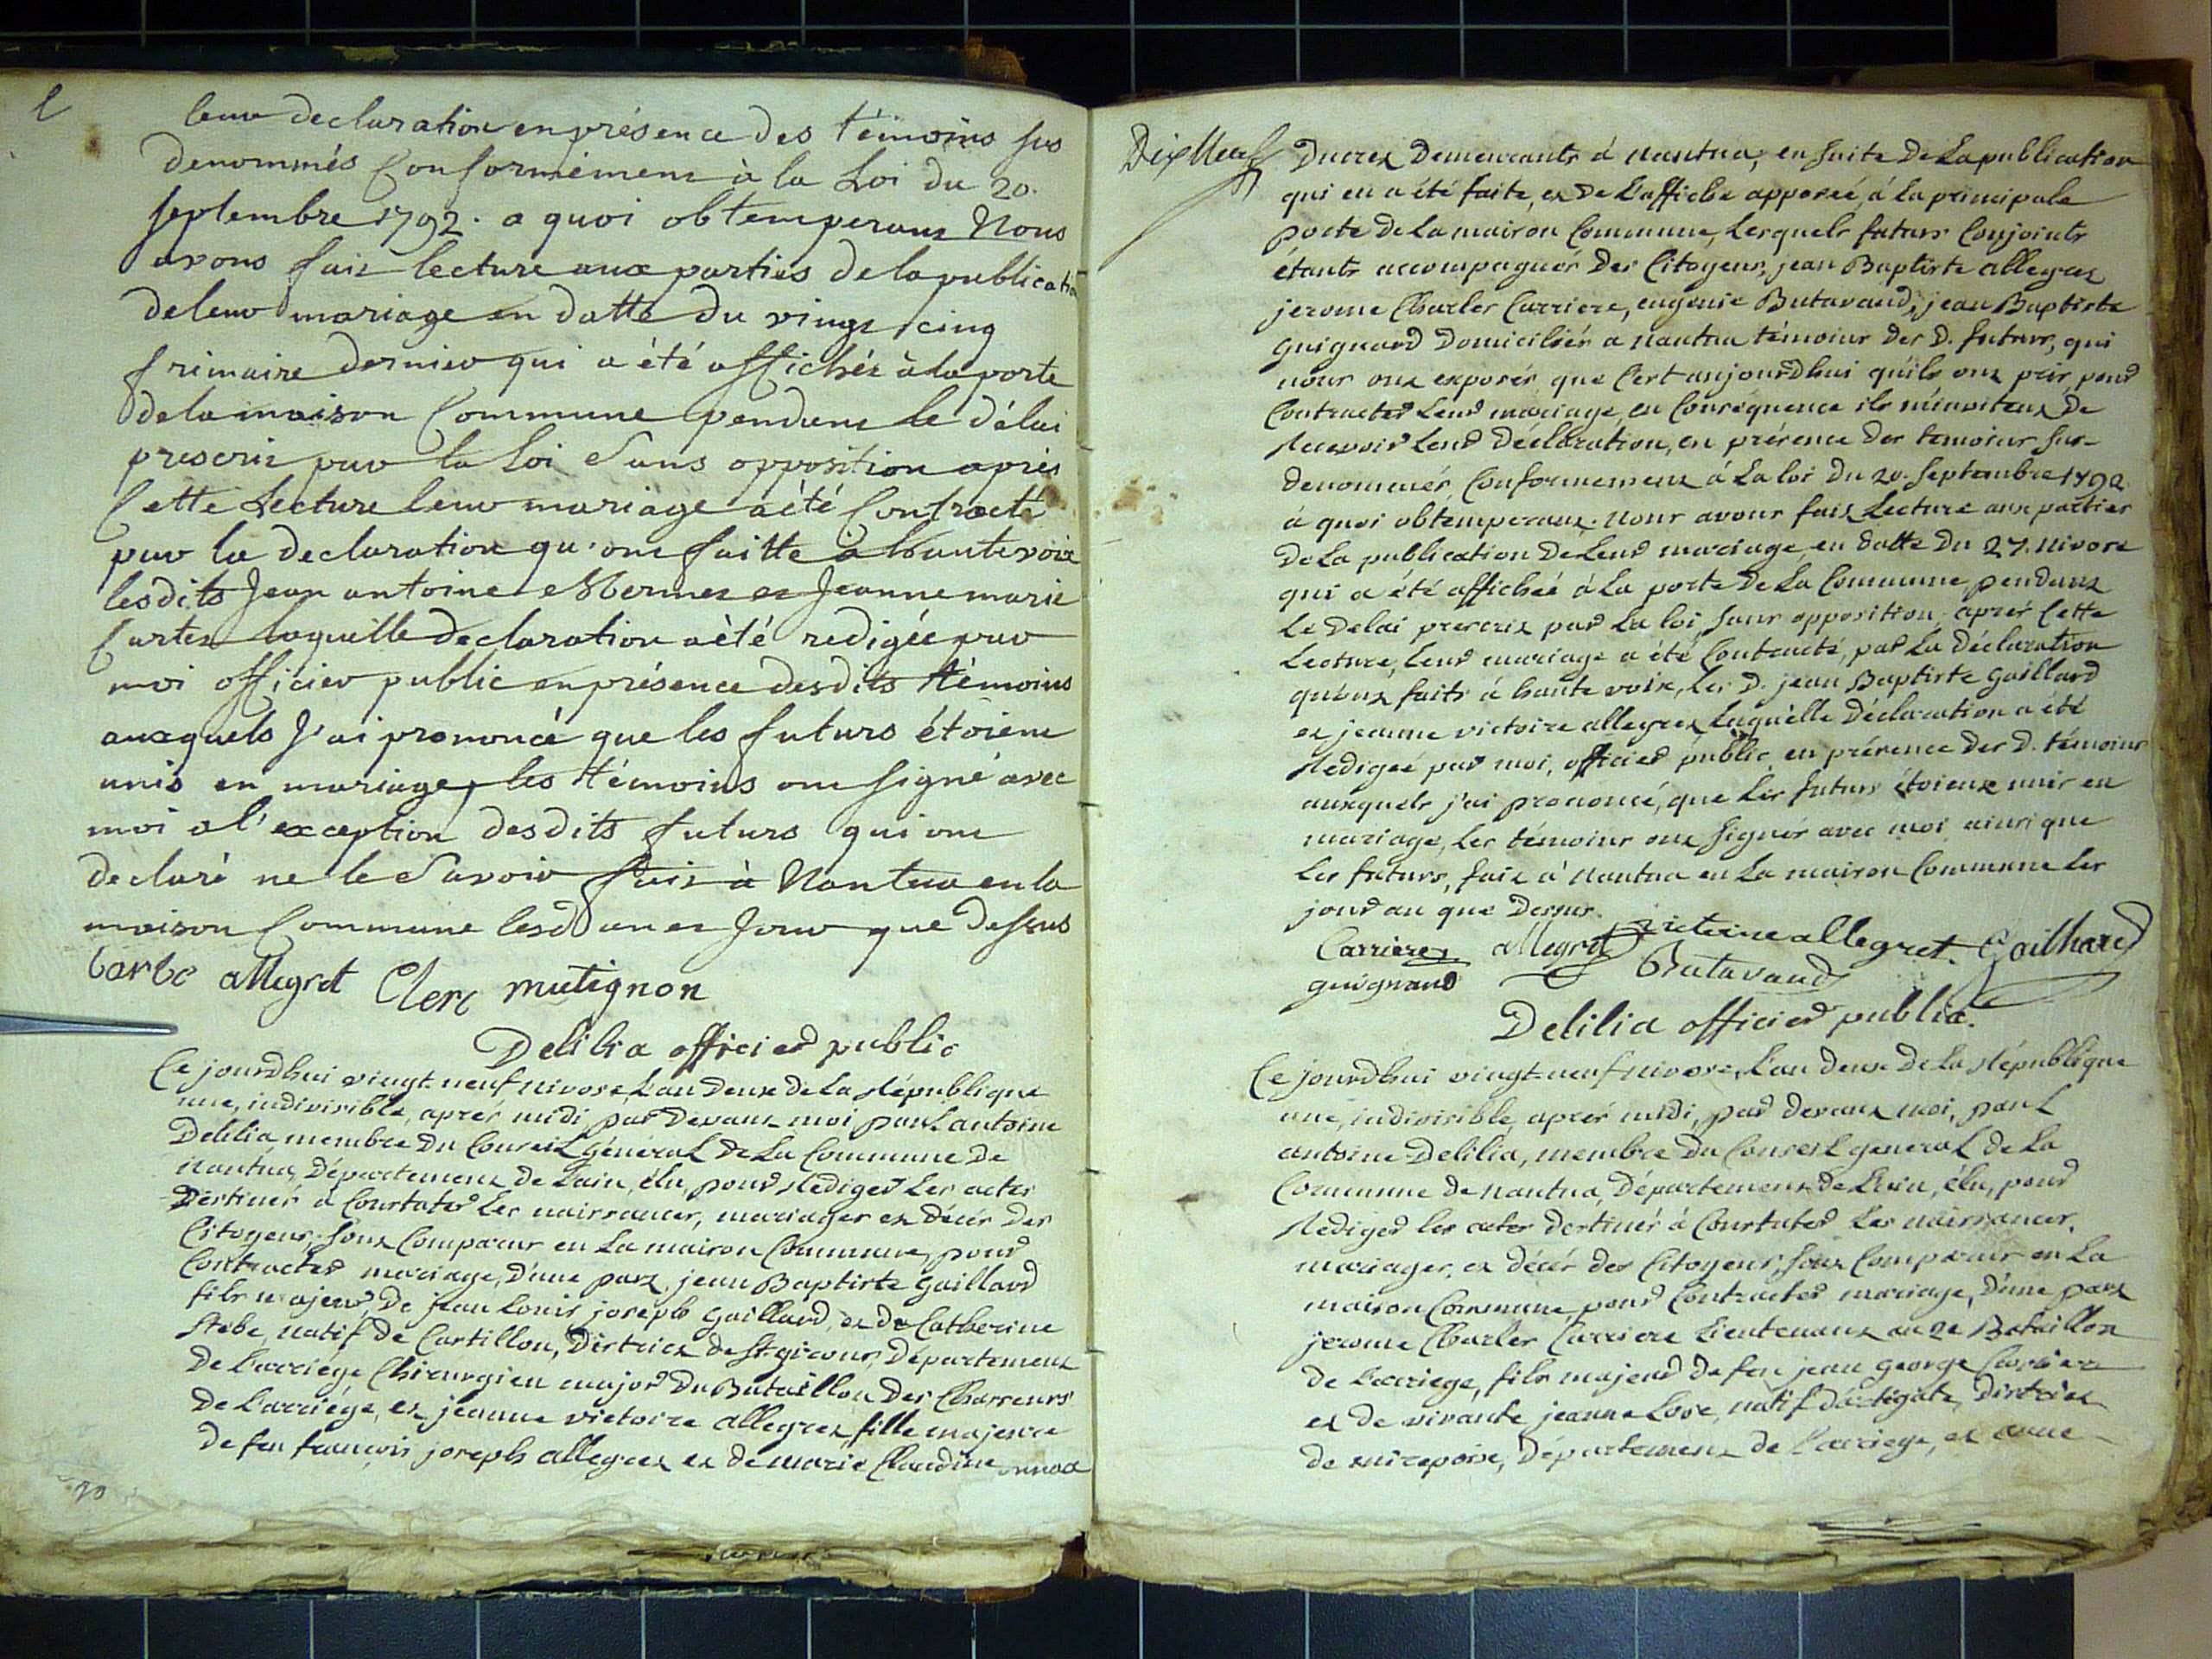 leur declaration en présence des témoins sus
denommés Conformément à la Loi du 20.
septembre 1792. a quoi obtemperant Nous
avons fait lecture aux parties de la publication
de leur mariage en datte du vingt cinq
frimaire dernier qui a été affichée à la porte
de la maison Commune pendant le délai
prescrit par la Loi Sans opposition après
Cette Lecture leur mariage a été Contracté
par la declaration qu'ont faitte à haute voix
lesdits Jean antoine Mermet et Jeanne marie
Curtet laquelle declaration a été redigée par
moi officier public en présence desdits témoins
auxquels J'ai prononcé que les futurs étoient
unis en mariage, les témoins ont signé avec
moi a l'exception desdits futurs qui ont
declaré ne le Savoir fait à Nantua en la
maison Commune lesd an et Jour que dessus
barbe allegret Clerc mutignon
Delilia officier public
Ce jourdhui vingt neuf nivose, L'an Deux De La République
une, indivisible, après midi, par Devant moi paul antoine
Delilia membre Du Conseil général De La Commune De
Nantua, Département De L'ain, élu, pour Rediger Les actes
Destinés à Constater Les naissances, mariages et Décès Des
Citoyens; Sont Comparus en La maison Commune, pour
Contracter mariage, D'une part, jean Baptiste Gaillard
fils majeur, De jean Louis joseph Gaillard, et De Catherine
Rebe, natif De Castillon, District De St. girons, Département
De L'arriége Chirurgien major Du Bataillon Des Chasseurs
De L'arriége, et jeanne victoire allegret, fille majeure
De feu françois joseph allegret et De marie Claudine
20
Dix Neuf
Ducret Demeurants à Nantua, en suite De La publication
qui en a été faite, et De L'affiche apposée, à La principale
porte De La maison Commune, Lesquels futurs Conjoints
étants accompagnés Des Citoyens, jean Baptiste allegret
jerome Charles Carriere, eugenie Butavand, jean Baptiste
Guignard Domiciliés a Nantua témoins Des D. futurs, qui
nous ont exposés que C'est aujourd'hui qu'ils ont pris pour
Contracter Leur mariage, en Conséquence ils m'invitent De
Recevoir Leur Déclaration, en présence Des temoins sus-
denommés, Conformement à La loi Du 20. Septembre 1792.
à quoi obtemperant. Nous avons fait Lecture aux parties
De La publication De Leur mariage, en datte Du 27. Nivose
qui a été affichée à La porte De La Commune, pendant
Le Delai prescrit par La loi, Sans opposition, après Cette
Lecture, Leur mariage a été Contracté, par La Déclaration
qu'ont faits à haute voix, Les D. jean Baptiste Gaillard
et jeanne victoire allegret, Laquelle Déclaration a été
Redigée par moi, officier public, en présence Des D. témoins
auxquels j'ai prononcé, que Les futurs étoient unis en
mariage, Les témoins ont Signés avec moi ainsi que
Les futurs, fait à Nantua en La maison Commune Les
jour an que Dessus.
Carriere allegret victoire allegret. Gailhard
guignard Butavand
Delilia officier public.
Ce jourd'hui vingt-neuf nivose, L'an Deux De La République
une, indivisible, après midi, par devant moi, paul
antoine Delilia, membre Du Conseil general De La
Commune De Nantua, Département De L'ain, élu, pour
Rediger les actes destinés à Constater Les naissances,
mariages, et décès des Citoyens, Sont Comparus en La
maison Commune, pour Contracter mariage, D'une part
jerome Charles Carriere Lieutenant au 2e Bataillon
de L'arriege, fils majeur de feu jean george Carriere
et de vivante jeanne Loze, natif d'artigats, District
de mirepoix, Département de L'arriege, et anne